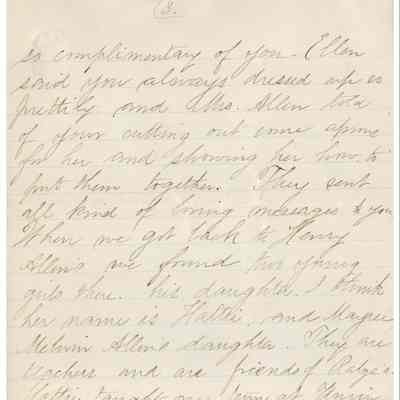 (3.
so complimentary of you - Ellen
said you always dressed up so
prettily and Mrs. Allen told
of your cutting out some aprons
for her and showing her how to
put them together. They sent
all kind of loving messages to you
When we got back to Henry
Allens we found two young
girls there. his daughter. I think
her name is Hattie. and Magee
Melvin Allens daughter. They are
teachers and are friends of
Hattie taught one time at